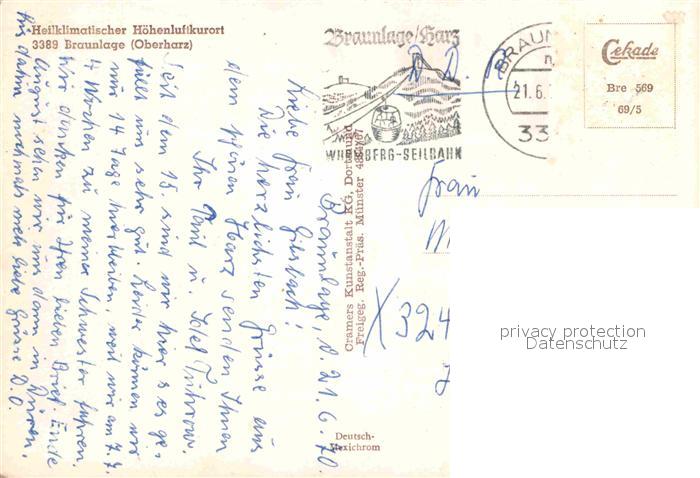 Heilklimatischer Höhenluftkurort
3389 Braunlage (Oberharz)
Braunlage/Harz
WURMBERG-SEILBAHN
BRAUN
21.6.
33
Cekade
Bre 569
69/5
Cramers Kunstanstalt KG, Dortmund
Freigeg. Reg.-Präs. Münster
Deutsch-
Mexichrom
Braunlage, d. 21.6.70.
Liebe Frau
Die herzlichsten Grüsse aus
dem schönen Harz senden Ihnen
Ihr Paul u.
Seit dem 15. sind wir hier u. es ge-
fällt uns sehr gut. Leider können wir
nur 14 Tage hierbleiben, weil wir am 7.7.
4 Wochen zu meiner Schwester fahren.
Wir danken für Ihren lieben Brief. Ende
August sehn wir uns dann in Düren.
Bis dahin nochmals viele liebe Grüsse D.O.
Frau
M
X 324
privacy protection
Datenschutz